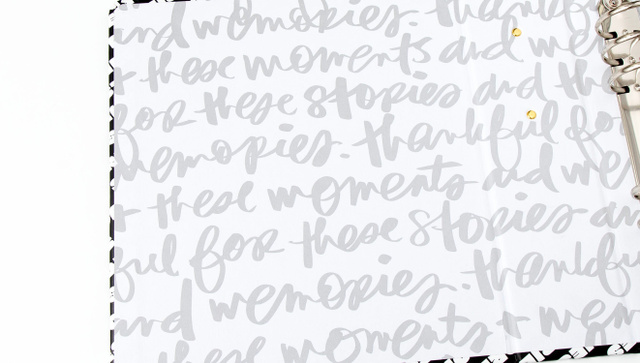 and memories. thankfu
+ these moments and me
for these stories and th
memories. thankful fo
+ these moments and me
ful for these stories an
and memories. thankfu
these moments + mem